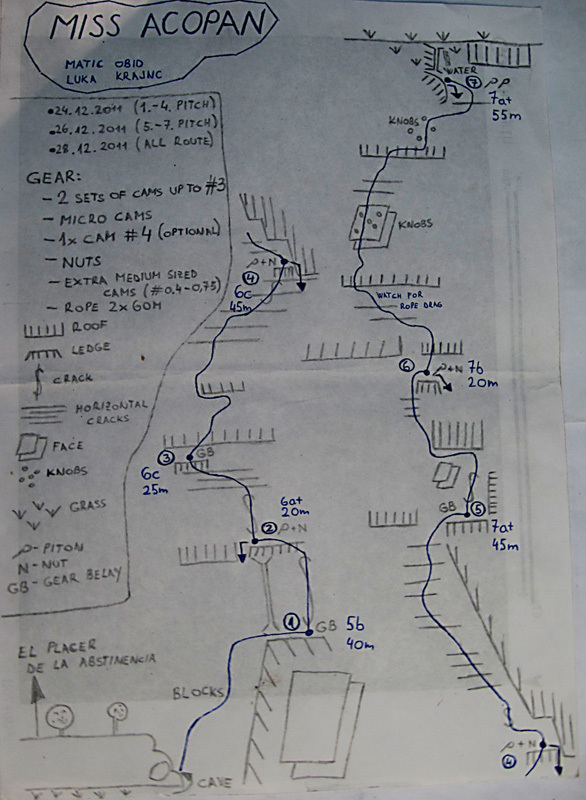 MISS ACOPAN
MATIC OBID
LUKA KRAJNC
•24.12.2011 (1.-4. PITCH)
•26.12.2011 (5.-7. PITCH)
•28.12.2011 (ALL ROUTE)
GEAR:
- 2 SETS OF CAMS UP TO #3
- MICRO CAMS
- 1x CAM #4 (OPTIONAL)
- NUTS
- EXTRA MEDIUM SIZED
CAMS (#0,4-0,75)
- ROPE 2x60M
ROOF
LEDGE
CRACK
HORIZONTAL
CRACKS
FACE
KNOBS
GRASS
- PITON
N - NUT
GB - GEAR BELAY
EL PLACER
DE LA ABSTINENCIA
BLOCKS
CAVE
1 GB 5b
40m
6a+
20m
2 +N
3 GB
6c
25m
+N
4
6c
45m
4 +N
GB 5
7a+
45m
6 +N 7b
20m
WATCH FOR
ROPE DRAG
KNOBS
KNOBS
WATER
7
7a+
55m